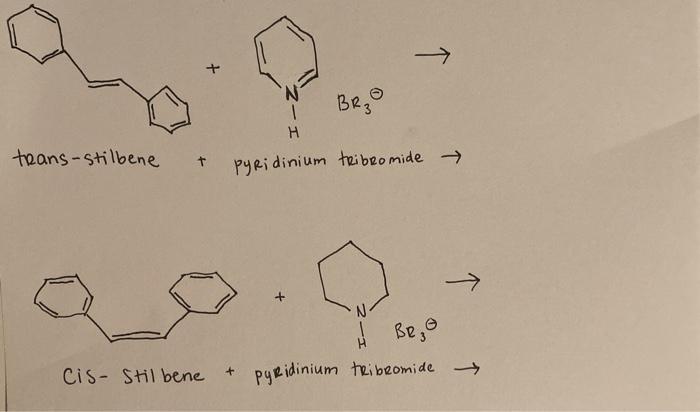 +
→
N
H
Br₃⊖
trans-stilbene + pyridinium tribromide →
+
→
N
H
Br₃⊖
cis-stilbene + pyridinium tribromide →